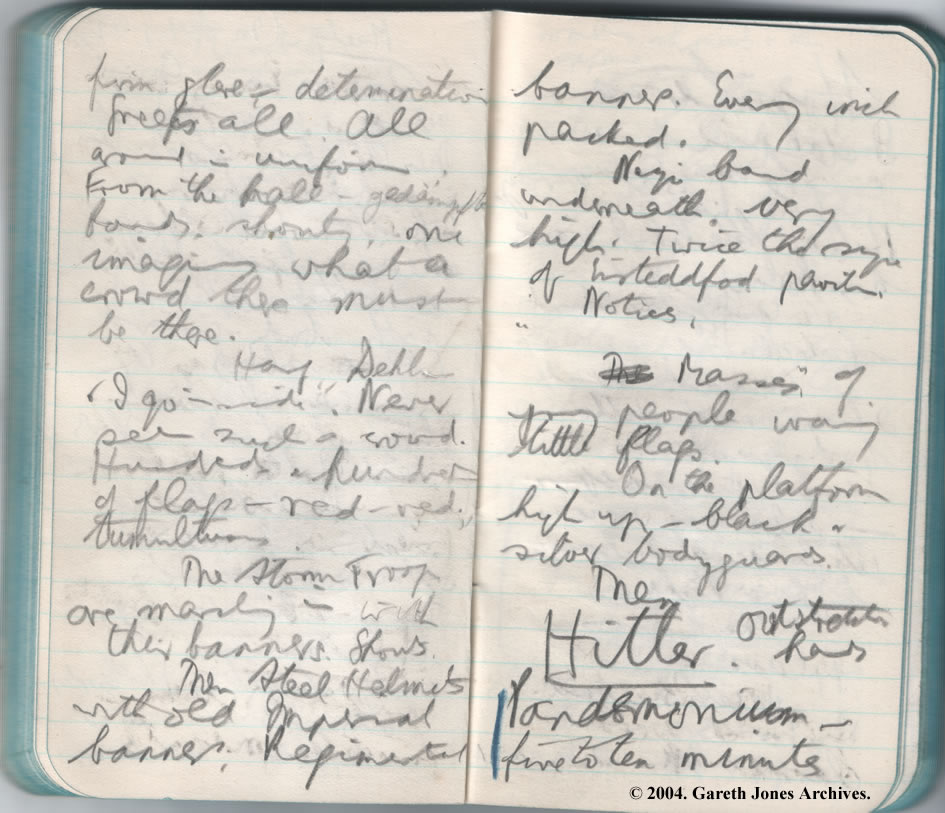 firm glare, determination
Greets all. All
around in uniform.
From the hall - gedämpfte
bands: shouts, one
imagines what a
crowd there must
be there.

"I go inside". Never
seen such a crowd.
Hundreds & hundreds
of flags - red - red,
tumultuous.
The Storm Troops
are marching in with
their banners. Shouts.
Then Steel Helmets
with old Imperial
banner, Regimental
banners. Every inch
packed.
Nazi band
underneath. very
high. Twice the size
of Eisteddfod pavilion.
Notices,
Masses of
people waving
little flags.
On the platform
high up - black &
silver bodyguards.
Then
Hitler. outstretched
hands
Pandemonium -
five to ten minutes.
© 2004. Gareth Jones Archives.